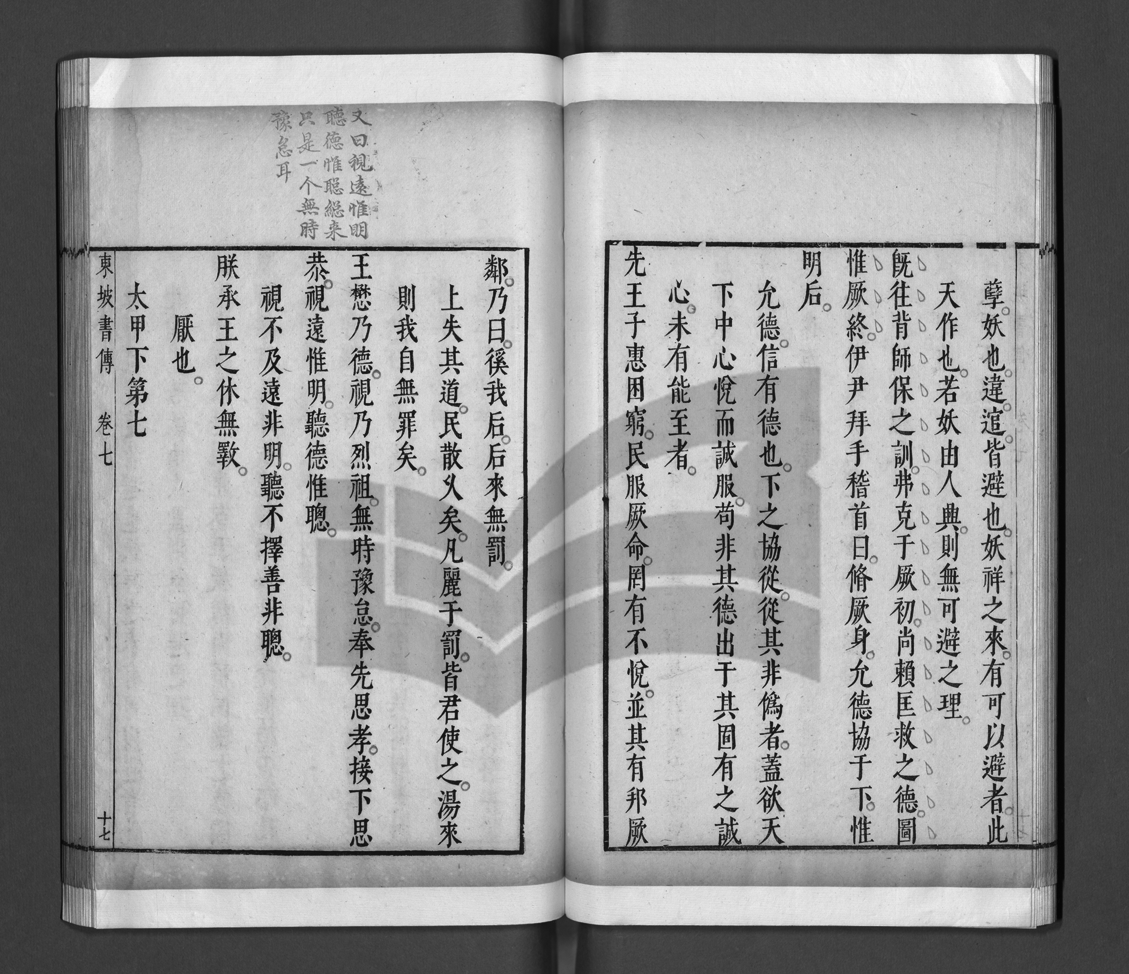 孽。妖也。違。逭。皆避也。妖祥之來。有可以避者。此
天作也。若妖由人興。則無可避之理。
旣往背師保之訓。弗克于厥初。尚賴匡救之德。圖
惟厥終。伊尹拜手稽首曰。脩厥身。允德協于下。惟
明后。
允德。信有德也。下之協從。從其非僞者。蓋欲天
下中心悅而誠服。苟非其德出于其固有之誠
心。未有能至者。
先王子惠困窮。民服厥命。罔有不悅。並其有邦厥
鄰。乃曰。徯我后。后來無罰。
上失其道。民散乆矣。凡麗于罰。皆君使之。湯來
則我自無罪矣。
王懋乃德。視乃烈祖。無時豫怠。奉先思孝。接下思
恭。視遠惟明。聽德惟聰。
視不及遠非明。聽不擇善非聰。
朕承王之休無斁。
厭也。
太甲下第七
東坡書傳 卷七 十七
又曰視遠惟明
聽德惟聡総来
只是一个無時
豫怠耳